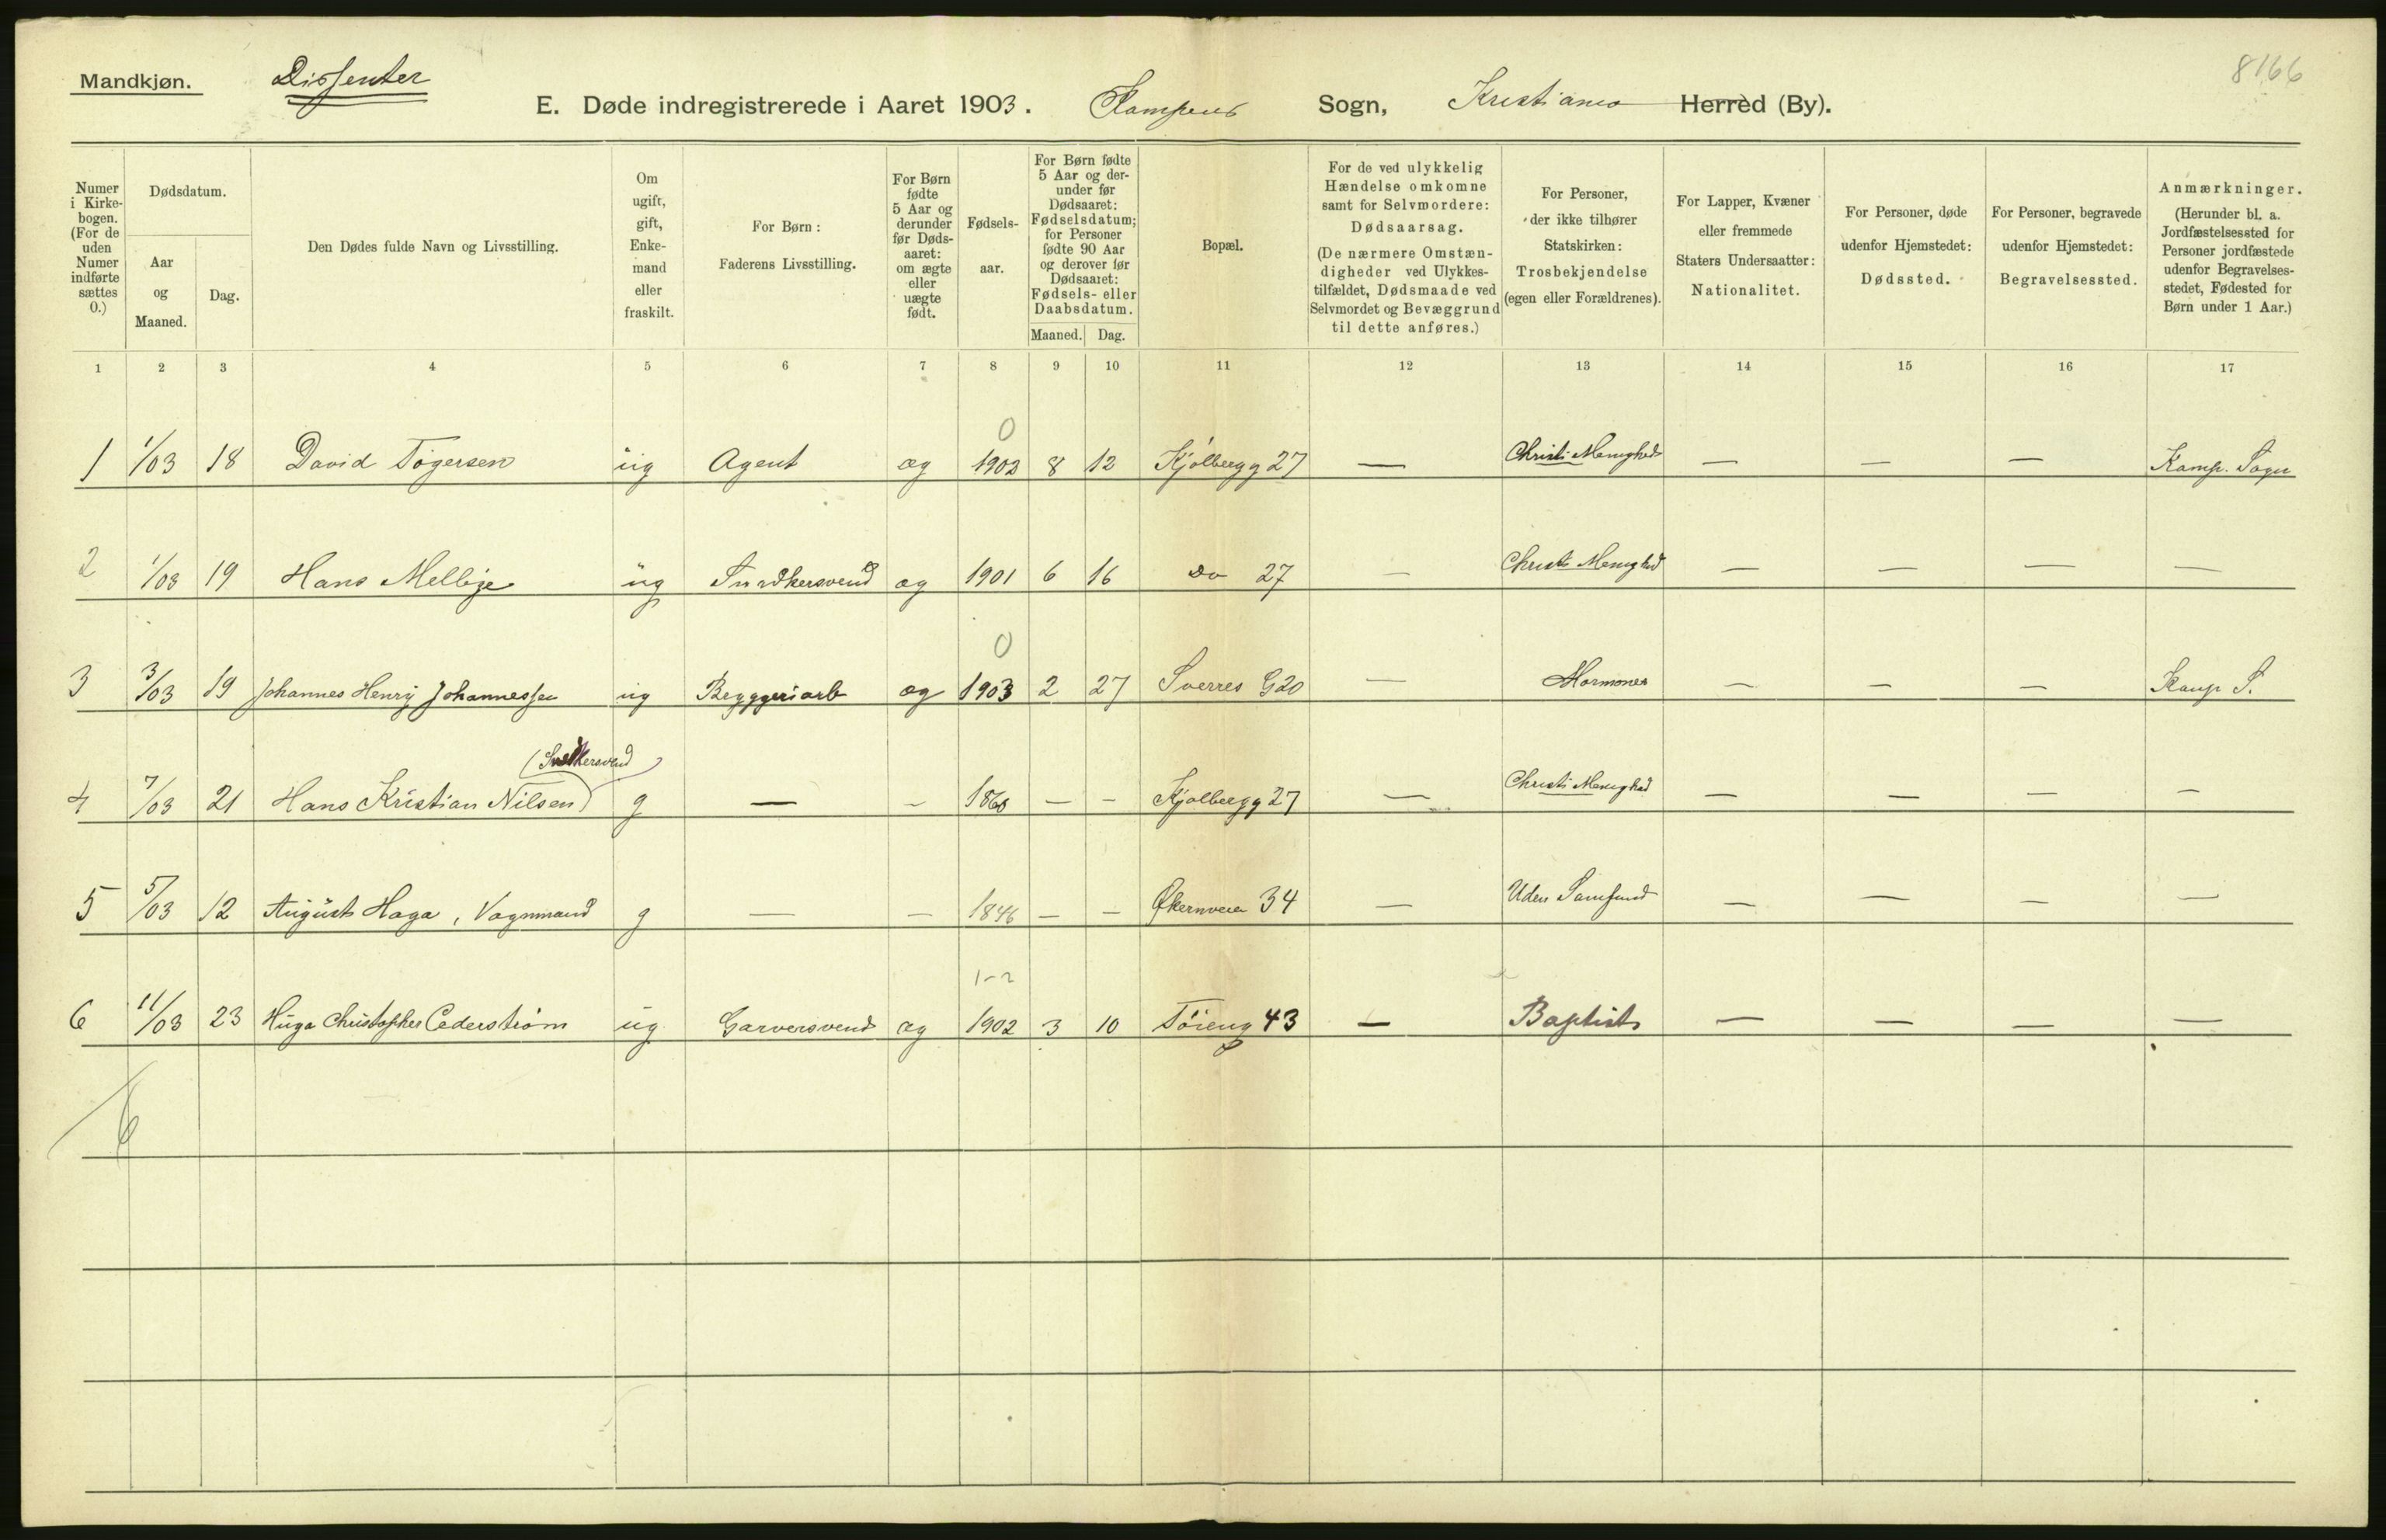 Mandkjøn.
Dissenter
8166
E. Døde indregistrerede i Aaret 1903. Kampens Sogn, Kristiania Herred (By).
Numer i Kirke-bogen. (For de uden Numer indførte sættes 0.)
Dødsdatum.
Aar og Maaned.
Dag.
Den Dødes fulde Navn og Livsstilling.
Om ugift, gift, Enke-mand eller fraskilt.
For Børn: Faderens Livsstilling.
For Børn fødte 5 Aar og derunder før Døds-aaret: om ægte eller uægte født.
Fødsels-aar.
For Børn fødte 5 Aar og der-under før Dødsaaret: Fødselsdatum; for Personer fødte 90 Aar og derover før Dødsaaret: Fødsels- eller Daabsdatum.
Maaned. Dag.
Bopæl.
For de ved ulykkelig Hændelse omkomne samt for Selvmordere: Dødsaarsag. (De nærmere Omstæn-digheder ved Ulykkes-tilfældet, Dødsmaade ved Selvmordet og Bevæggrund til dette anføres.)
For Personer, der ikke tilhører Statskirken: Trosbekjendelse (egen eller Forældrenes).
For Lapper, Kvæner eller fremmede Staters Undersaatter: Nationalitet.
For Personer, døde udenfor Hjemstedet: Dødssted.
For Personer, begravede udenfor Hjemstedet: Begravelsessted.
Anmærkninger. (Herunder bl. a. Jordfæstelsessted for Personer jordfæstede udenfor Begravelses-stedet, Fødested for Børn under 1 Aar.)
1 2 3 4 5 6 7 8 9 10 11 12 13 14 15 16 17
0
1 1/03 18 David Tøgersen ug Agent æg 1902 8 12 Kjølbergg 27 — Christi Menighed — — — Kamp. Sogn
2 1/03 19 Hans Mellbye ug Snedkersvend æg 1901 6 16 Do 27 — Christi Menighed — — — —
0
3 3/03 19 Johannes Henry Johannessen ug Bryggeriarb æg 1903 2 27 Sverres G 20 — Mormoner — — — Kamp S.
(Snedkersvend)
4 7/03 21 Hans Kristian Nilsen g — — 1860 — — Kjølbergg 27 — Christi Menighed — — — —
5 5/03 12 August Haga, Vognmand g — — 1846 — — Økernveien 34 — Uden Samfund — — — —
1-2
6 11/03 23 Hugo Christopher Cederstrøm ug Garversvend æg 1902 3 10 Tøieng 43 — Baptist — — — —
6